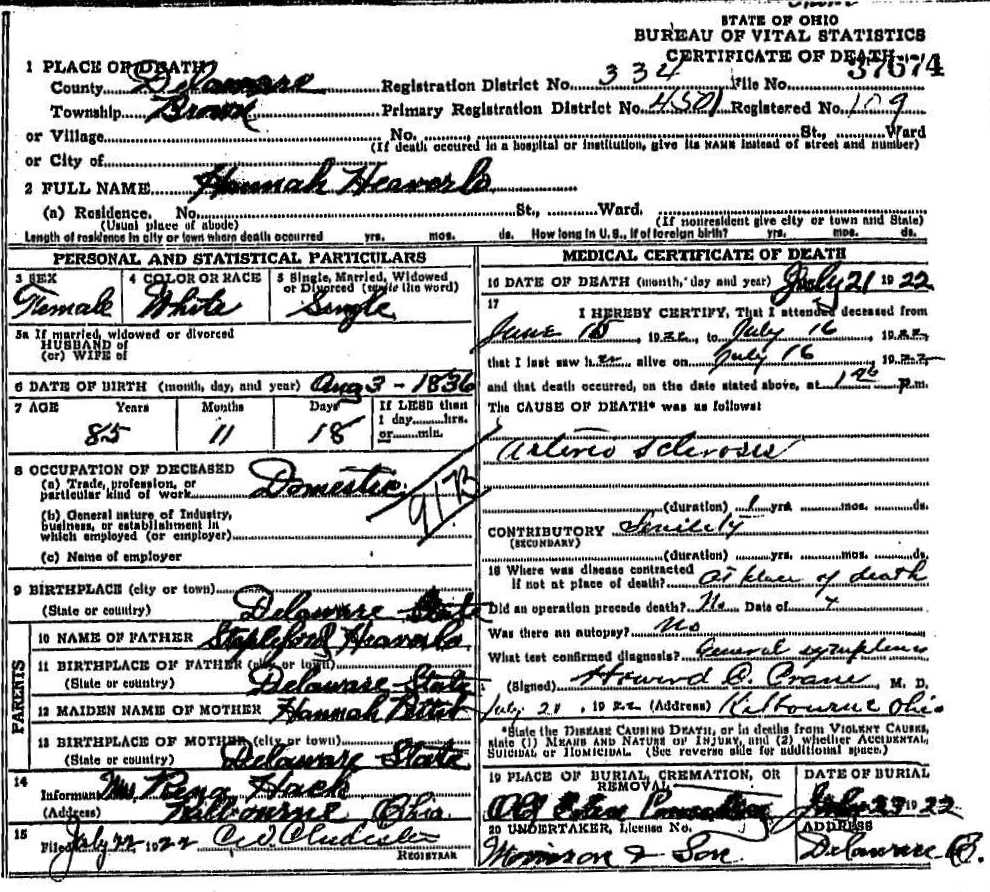 STATE OF OHIO
BUREAU OF VITAL STATISTICS
CERTIFICATE OF DEATH
37674
1 PLACE OF DEATH
County Delaware Registration District No. 334 File No.
Township Brown Primary Registration District No. 4501 Registered No. 109
or Village No. St., Ward
(If death occured in a hospital or institution, give its NAME instead of street and number)
or City of
2 FULL NAME Hannah Heaverlo
(a) Residence. No. St., Ward.
(Usual place of abode) (If nonresident give city or town and State)
Length of residence in city or town where death occurred yrs. mos. ds. How long in U.S., if of foreign birth? yrs. mos. ds.
PERSONAL AND STATISTICAL PARTICULARS
3 SEX 4 COLOR OR RACE 5 Single, Married, Widowed
or Divorced (write the word)
Female White Single
5a If married, widowed or divorced
HUSBAND of
(or) WIFE of
6 DATE OF BIRTH (month, day, and year) Aug 3 - 1836
7 AGE Years Months Days If LESS than
1 day hrs.
or min.
85 11 18
8 OCCUPATION OF DECEASED
(a) Trade, profession, or
particular kind of work Domestic
(b) General nature of Industry,
business, or establishment in
which employed (or employer)
(c) Name of employer
917B
9 BIRTHPLACE (city or town)
(State or country) Delaware State
PARENTS
10 NAME OF FATHER Stapleford Heaverlo
11 BIRTHPLACE OF FATHER (city or town)
(State or country) Delaware State
12 MAIDEN NAME OF MOTHER Hannah Pettit
13 BIRTHPLACE OF MOTHER (city or town)
(State or country) Delaware State
14
Informant Mrs Rena Hack
(Address) Kilbourne Ohio
15
Filed July 22 1922
REGISTRAR
MEDICAL CERTIFICATE OF DEATH
16 DATE OF DEATH (month, day and year) July 21 1922
17
I HEREBY CERTIFY, That I attended deceased from
June 15, 1922, to July 16, 1922,
that I last saw her alive on July 16, 1922
and that death occurred, on the date stated above, at p.m.
The CAUSE OF DEATH* was as follows:
Arterio Sclerosis
(duration) 1 yrs mos. ds.
CONTRIBUTORY Senility
(SECONDARY)
(duration) yrs. mos. ds.
18 Where was disease contracted
if not at place of death? At place of death
Did an operation precede death? No Date of x
Was there an autopsy? No
What test confirmed diagnosis? General symptoms
(Signed) Howard C. Crane, M. D.
July 21, 1922 (Address) Kilbourne Ohio
*State the DISEASE CAUSING DEATH, or in deaths from VIOLENT CAUSES,
state (1) MEANS AND NATURE OF INJURY, and (2) whether ACCIDENTAL,
SUICIDAL or HOMICIDAL (See reverse side for additional space.)
19 PLACE OF BURIAL, CREMATION, OR
REMOVAL
DATE OF BURIAL
July 23 1922
20 UNDERTAKER, License No. ADDRESS
Morrison & Son Delaware O.